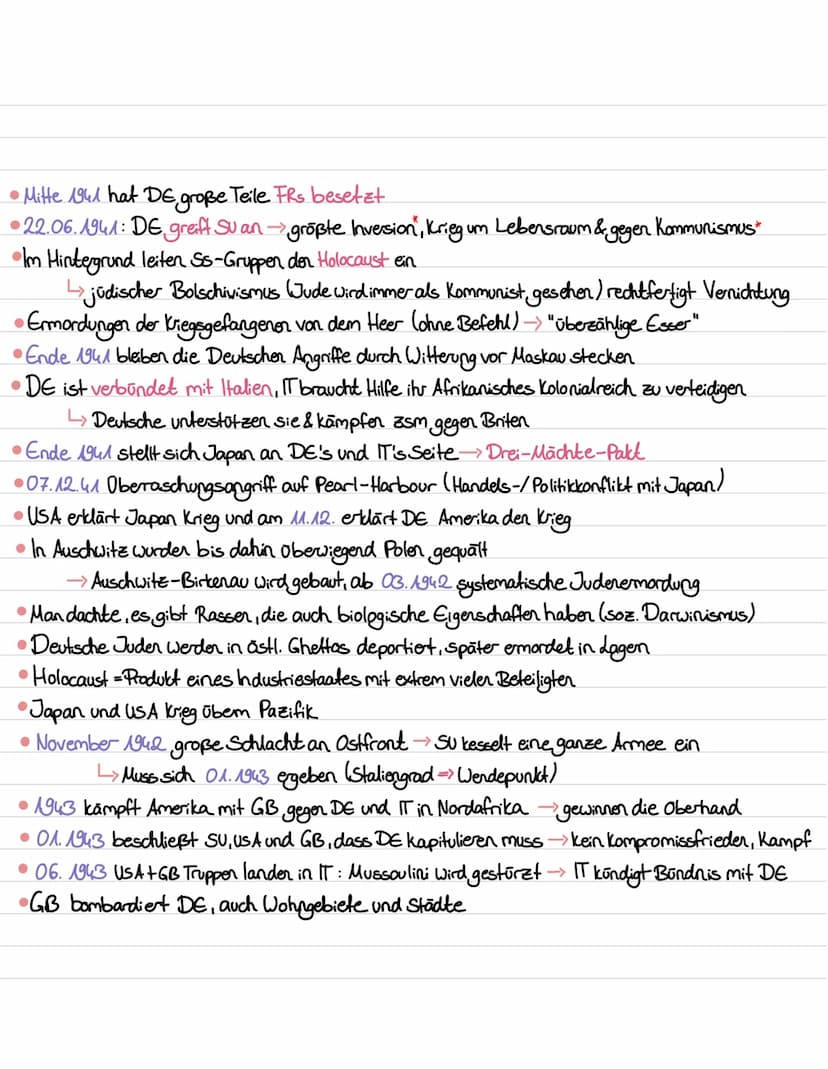 • Mitte 1941 hat DE große Teile FRs besetzt
• 22.06.1941: DE greift SU an → größte Inversion*, Krieg um Lebensraum & gegen Kommunismus*
• Im Hintergrund leiten SS-Gruppen den Holocaust ein
↳ jüdischer Bolschivismus (Jude wird immer als Kommunist gesehen) rechtfertigt Vernichtung
• Ermordungen der Kriegsgefangenen von dem Heer (ohne Befehl) → "überzählige Esser"
• Ende 1941 bleiben die Deutschen Angriffe durch Witterung vor Moskau stecken
• DE ist verbündet mit Italien, IT braucht Hilfe ihr Afrikanisches Kolonialreich zu verteidigen
↳ Deutsche unterstützen sie & kämpfen zsm. gegen Briten
• Ende 1941 stellt sich Japan an DE's und IT's Seite → Drei-Mächte-Pakt
• 07.12.41 Überraschungsangriff auf Pearl-Harbour (Handels-/Politikkonflikt mit Japan)
• USA erklärt Japan Krieg und am 11.12. erklärt DE Amerika den Krieg
• In Auschwitz wurden bis dahin überwiegend Polen gequält
→ Auschwitz-Birkenau wird gebaut, ab 03.1942 systematische Judenermordung
• Man dachte, es gibt Rassen, die auch biologische Eigenschaften haben (soz. Darwinismus)
• Deutsche Juden werden in östl. Ghettos deportiert, später ermordet in Lagen
• Holocaust = Produkt eines Industriestaates mit extrem vielen Beteiligten
• Japan und USA Krieg überm Pazifik
• November 1942 große Schlacht an Ostfront → SU kesselt eine ganze Armee ein
↳ Muss sich 01.1943 ergeben (Staliengrad => Wendepunkt)
• 1943 kämpft Amerika mit GB gegen DE und IT in Nordafrika → gewinnen die Oberhand
• 01.1943 beschließt SU, USA und GB, dass DE kapitulieren muss → kein Kompromissfrieden, Kampf
• 06. 1943 USA+GB Truppen landen in IT: Mussoulini wird gestürzt → IT kündigt Bündnis mit DE
• GB bombardiert DE, auch Wohngebiete und Städte